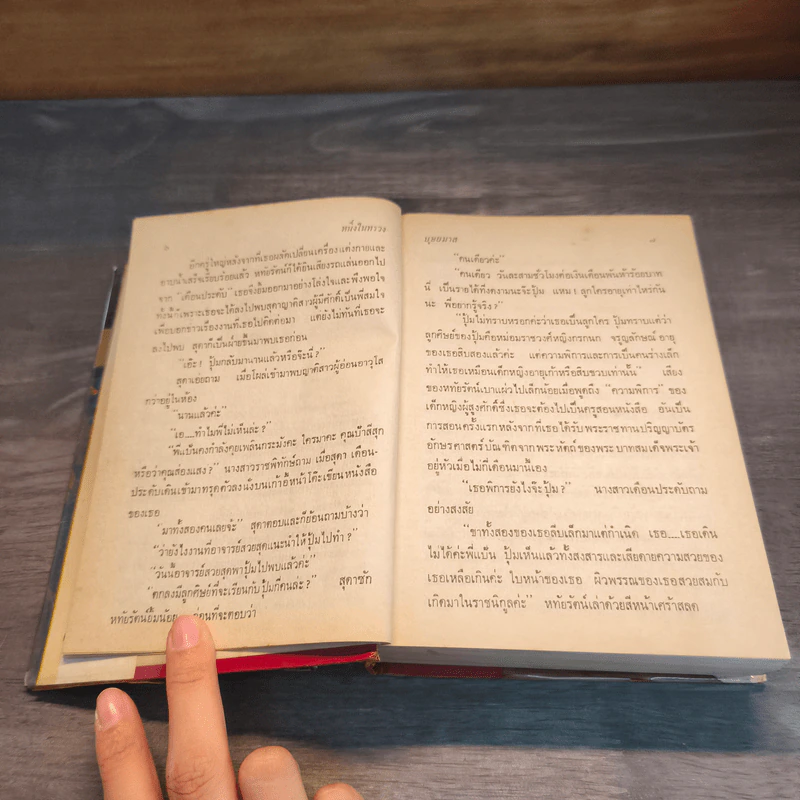 ๖ หนึ่งในทรวง
ตึกครู่ใหญ่หลังจากที่เธอผลัดเปลี่ยนเครื่องแต่งกายและ
อาบน้ำเสร็จเรียบร้อยแล้ว หทัยรัตน์ก็ได้ยินเสียงรถแล่นออกไป
จาก “เดือนประดับ” เธอจึงยิ้มออกมาอย่างโล่งใจและพึงพอใจ
ทั้งนี้ก็เพราะเธอจะได้ลงไปพบสุดาญาติสาวผู้มีศักดิ์เป็นพี่สมใจ
เพื่อบอกข่าวเรื่องงานที่เธอไปติดต่อมา แต่ยังไม่ทันที่เธอจะ
ลงไปพบ สุดาก็เป็นฝ่ายขึ้นมาพบเธอก่อน
“เอ๊ะ! ปุ้มกลับมานานแล้วหรือจ๊ะนี่?”
สุดาเอ่ยถาม เมื่อโผล่เข้ามาพบญาติสาวผู้อ่อนอาวุโส
กว่าอยู่ในห้อง
“นานแล้วค่ะ”
“เอ....ทำไมพี่ไม่เห็นล่ะ?”
“พี่แป้นคงกำลังคุยเพลินกระมังคะ ใครมาคะ คุณป้าสีสุก
หรือว่าคุณส่องแสง?” นางสาวราชพิทักษ์ถาม เมื่อสุดา เดือน-
ประดับเดินเข้ามาทรุดตัวลงนั่งบนเก้าอี้หน้าโต๊ะเขียนหนังสือ
ของเธอ
“มาทั้งสองคนเลยจ้ะ” สุดาตอบและก็ย้อนถามบ้างว่า
“ว่ายังไงงานที่อาจารย์สวยสุดแนะนำให้ปุ้มไปทำ?”
“วันนี้อาจารย์สวยสุดพาปุ้มไปพบแล้วค่ะ”
“ตกลงมีลูกศิษย์ที่จะเรียนกับปุ้มกี่คนล่ะ?” สุดาซัก
หทัยรัตน์ยิ้มน้อย ก่อนที่จะตอบว่า
บุษยมาส
“คนเดียวค่ะ”
“คนเดียว วันละสามชั่วโมงต่อเงินเดือนพันห้าร้อยบาท
นี่ เป็นรายได้ที่งดงามนะจ๊ะปุ้ม แหม! ลูกใครอายุเท่าไหร่กัน
นะ พี่อยากรู้จริง?”
“ปุ้มไม่ทราบหรอกค่ะว่าเธอเป็นลูกใคร ปุ้มทราบแต่ว่า
ลูกศิษย์ของปุ้มคือหม่อมราชวงศ์หญิงกรกนก จรูญลักษณ์ อายุ
ของเธอสิบสองแล้วค่ะ แต่ความพิการและการเป็นคนร่างเล็ก
ทำให้เธอเหมือนเด็กหญิงอายุเก้าหรือสิบขวบเท่านั้น” เสียง
ของหทัยรัตน์เบาแผ่วไปเล็กน้อยเมื่อพูดถึง “ความพิการ” ของ
เด็กหญิงผู้สูงศักดิ์ซึ่งเธอจะต้องไปเป็นครูสอนหนังสือ อันเป็น
การสอนครั้งแรกหลังจากที่เธอได้รับพระราชทานปริญญาบัตร
อักษรศาสตร์บัณฑิตจากพระหัตถ์ของพระบาทสมเด็จพระเจ้า
อยู่หัวเมื่อไม่กี่เดือนมานี้เอง
“เธอพิการยังไงจ๊ะปุ้ม?” นางสาวเดือนประดับถาม
อย่างสงสัย
“ขาทั้งสองของเธอลีบเล็กมาแต่กำเนิด เธอ....เธอเดิน
ไม่ได้ค่ะพี่แป้น ปุ้มเห็นแล้วทั้งสงสารและเสียดายความสวยของ
เธอเหลือเกินค่ะ ใบหน้าของเธอ ผิวพรรณของเธอสวยสมกับ
เกิดมาในราชนิกูลค่ะ” หทัยรัตน์เล่าด้วยสีหน้าเศร้าสลด